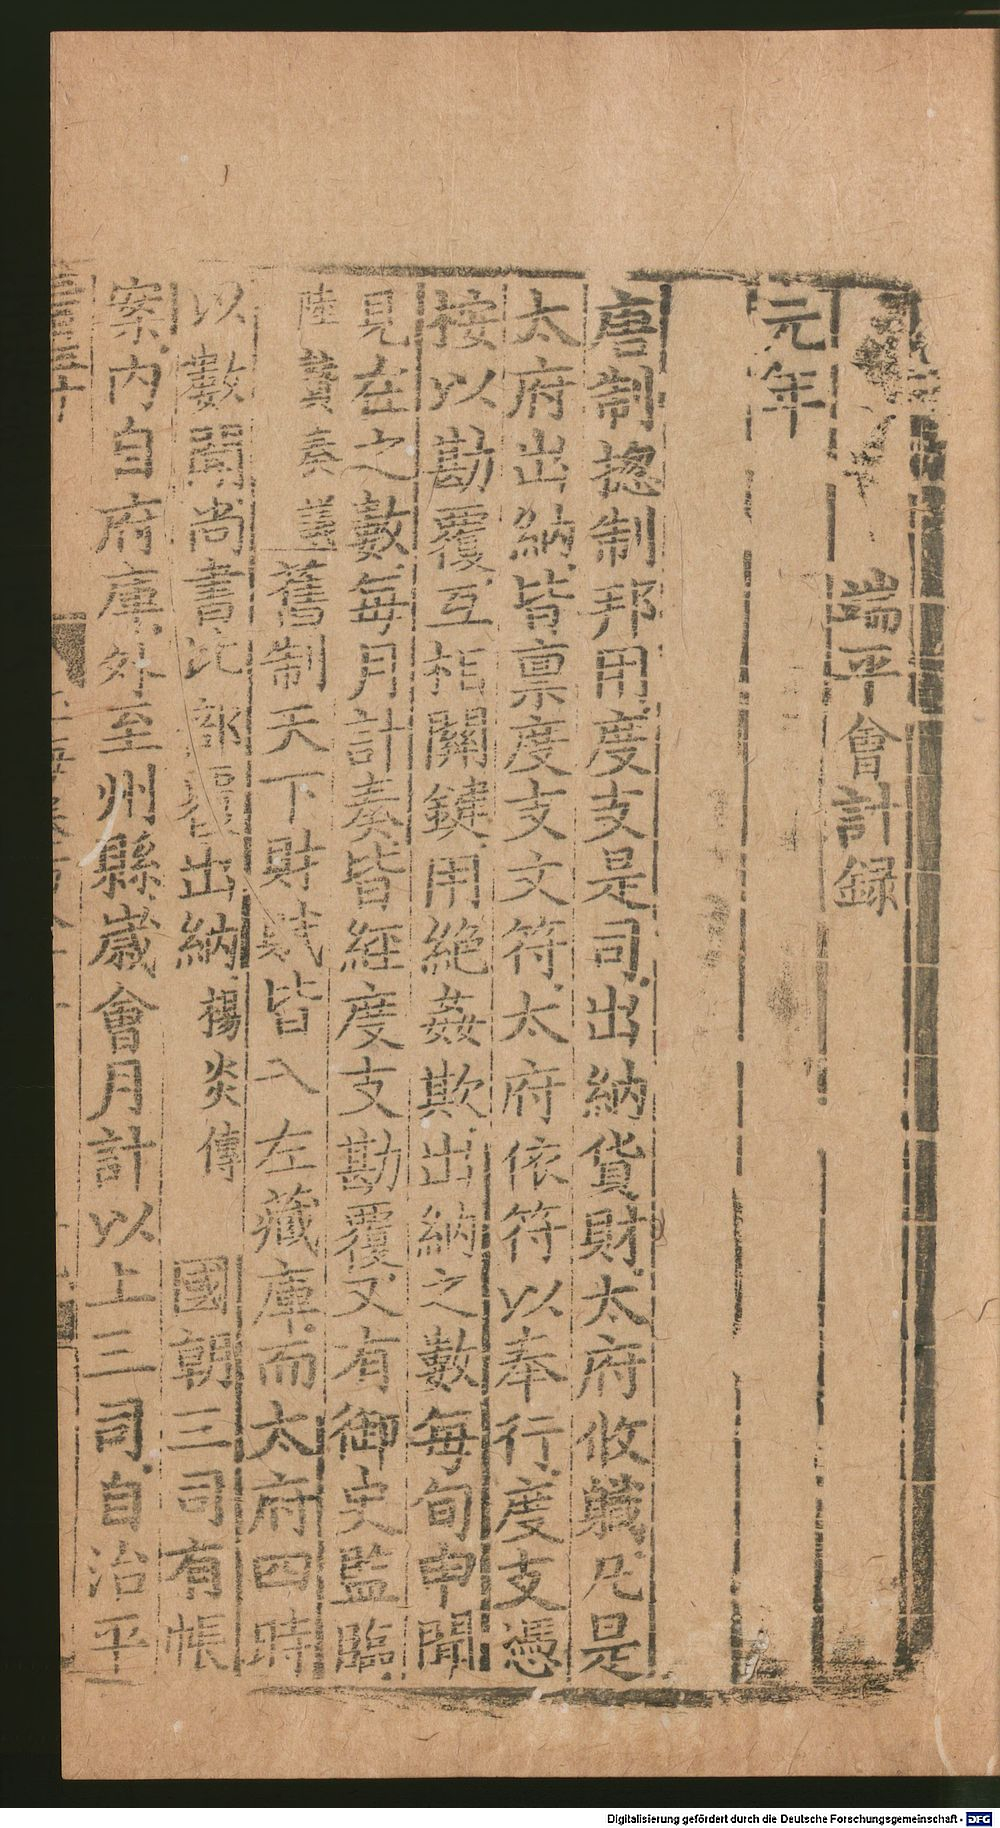 端平會計録
元年
唐制揔制邦用度支是司出納貨財太府攸職凡是
太府出納皆禀度支文符太府依符以奉行度支憑
按以勘覆互相關鍵用絶姦欺出納之數每旬申聞
見在之數每月計奏皆經度支勘覆又有御史監臨
陸贄奏議舊制天下財賦皆入左藏庫而太府四時
以數聞尚書比部覆出納楊炎傳 國朝三司有帳
案内自府庫外至州縣歲會月計以上三司自治平
Digitalisierung gefördert durch die Deutsche Forschungsgemeinschaft - DFG